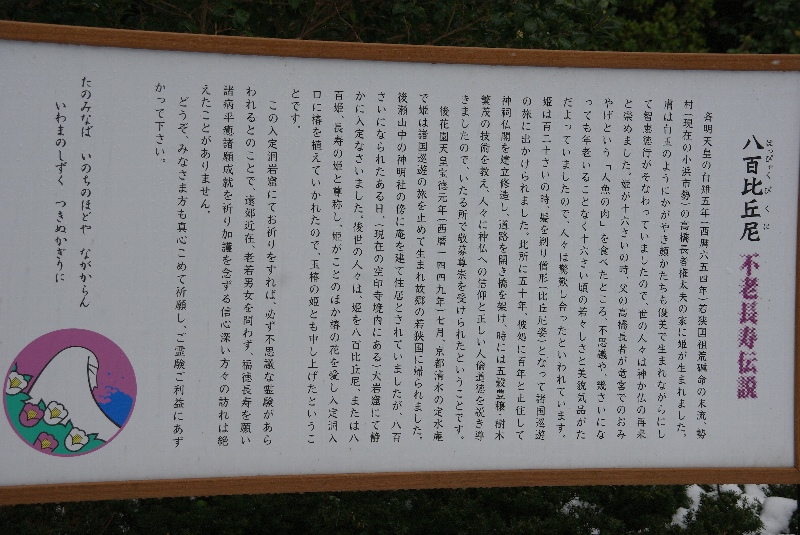 はっぴゃくびくに
八百比丘尼 不老長寿伝説
斉明天皇の白雉五年(西暦六五四年)若狭国祖荒礪命の末流、勢
村(現在の小浜市勢)の高橋長者権太夫の家に姫が生まれました。
肩は白玉のようにかがやき顔かたちも優美で生まれながらにし
て智恵徳行がそなわっていましたので、世の人々は神か仏の再来
と崇めました。姫が十六さいの時、父の高橋長者が竜宮でのおみ
やげという「人魚の肉」を食べたところ、不思議や、幾さいにな
っても年老いることなく十六さい頃の若々しさと美貌気品がた
だよっていましたので、人々は驚歎し合ったといわれています。
姫は百二十さいの時、髪を剃り僧形(比丘尼姿)となって諸国巡遊
の旅に出かけられました。此所に五十年、彼処に百年と止住して
神祠仏閣を建立修造し、道路を開き橋を架け、時には五穀豊穣・樹木
繁茂の技術を教え、人々に神仏への信仰と正しい人倫道徳を説き導
きましたので、いたる所で敬慕尊崇を受けられたということです。
後花園天皇宝徳元年(西暦一四四九年)七月、京都清水の定水庵
で姫は諸国巡遊の旅を止めて生まれ故郷の若狭国に帰られました。
後瀬山中の神明社の傍に庵を建て住居とされていましたが、八百
さいになられたある日、(現在の空印寺境内にある)大岩窟にて静
かに入定なさいました。後世の人々は、姫を八百比丘尼、または八
百姫、長寿の姫と尊称し、姫がことのほか椿の花を愛し入定洞入
口に椿を植えていかれたので、玉椿の姫とも申し上げたというこ
とです。
この入定洞岩窟にてお祈りをすれば、必ず不思議な霊験があら
われるとのことで、遠郊近在、老若男女を問わず、福徳長寿を願い
諸病平癒諸願成就を祈り加護を念ずる信心深い方々の訪れは絶
えたことがありません。
どうぞ、みなさま方も真心こめて祈願し、ご霊験ご利益にあず
かって下さい。
たのみなば いのちのほどや ながからん
いわまのしずく つきぬかぎりに